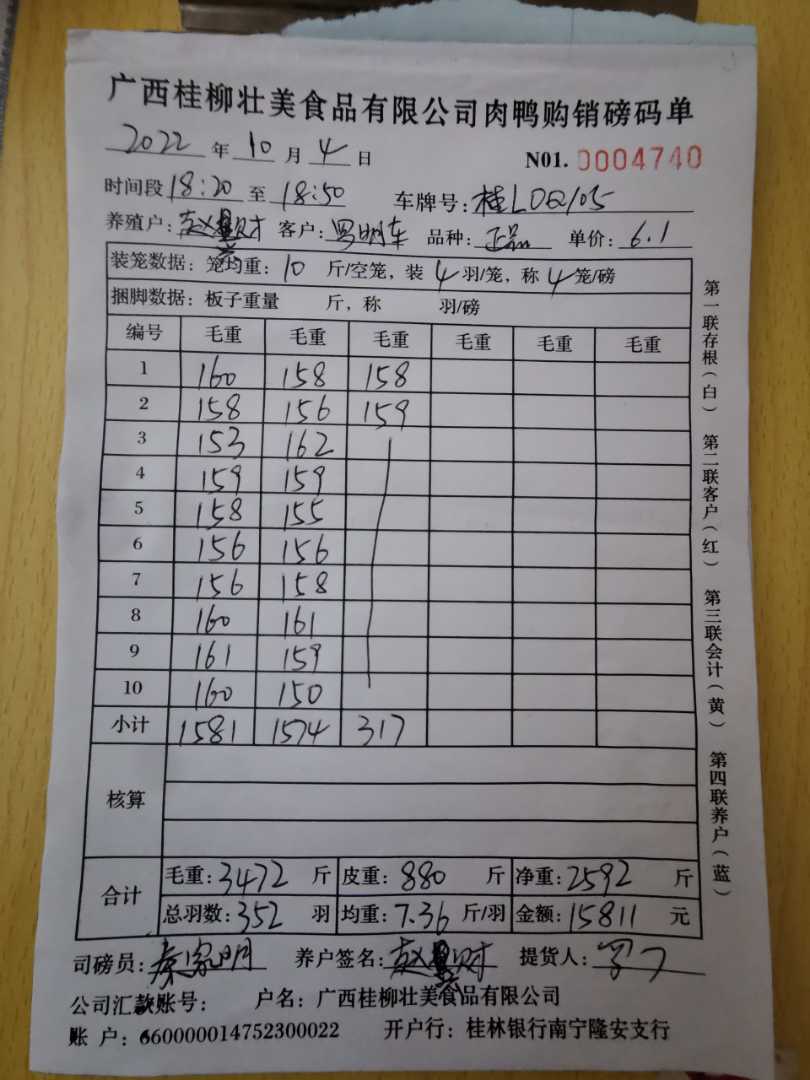 广西桂柳壮美食品有限公司肉鸭购销磅码单
2022 年 10 月 4 日 N01. 0004740
时间段 18:20 至 18:50 车牌号: 桂LDQ105
养殖户: 赵 财 客户: 罗明车 品种: 正品 单价: 6.1
装笼数据: 笼均重: 10 斤/空笼, 装 4 羽/笼, 称 4 笼/磅
捆脚数据: 板子重量 斤, 称 羽/磅
编号 毛重 毛重 毛重 毛重 毛重 毛重
1 160 158 158
2 158 156 159
3 153 162
4 159 159
5 158 155
6 156 156
7 156 158
8 160 161
9 161 159
10 160 150
小计 1581 1574 317
核算
合计
毛重: 3472 斤 皮重: 880 斤 净重: 2592 斤
总羽数: 352 羽 均重: 7.36 斤/羽 金额: 15811 元
司磅员: 秦家明 养户签名: 赵 财 提货人:
公司汇款账号: 户名: 广西桂柳壮美食品有限公司
账 户: 660000014752300022 开户行: 桂林银行南宁隆安支行
第一联存根(白) 第二联客户(红) 第三联会计(黄) 第四联养户(蓝)